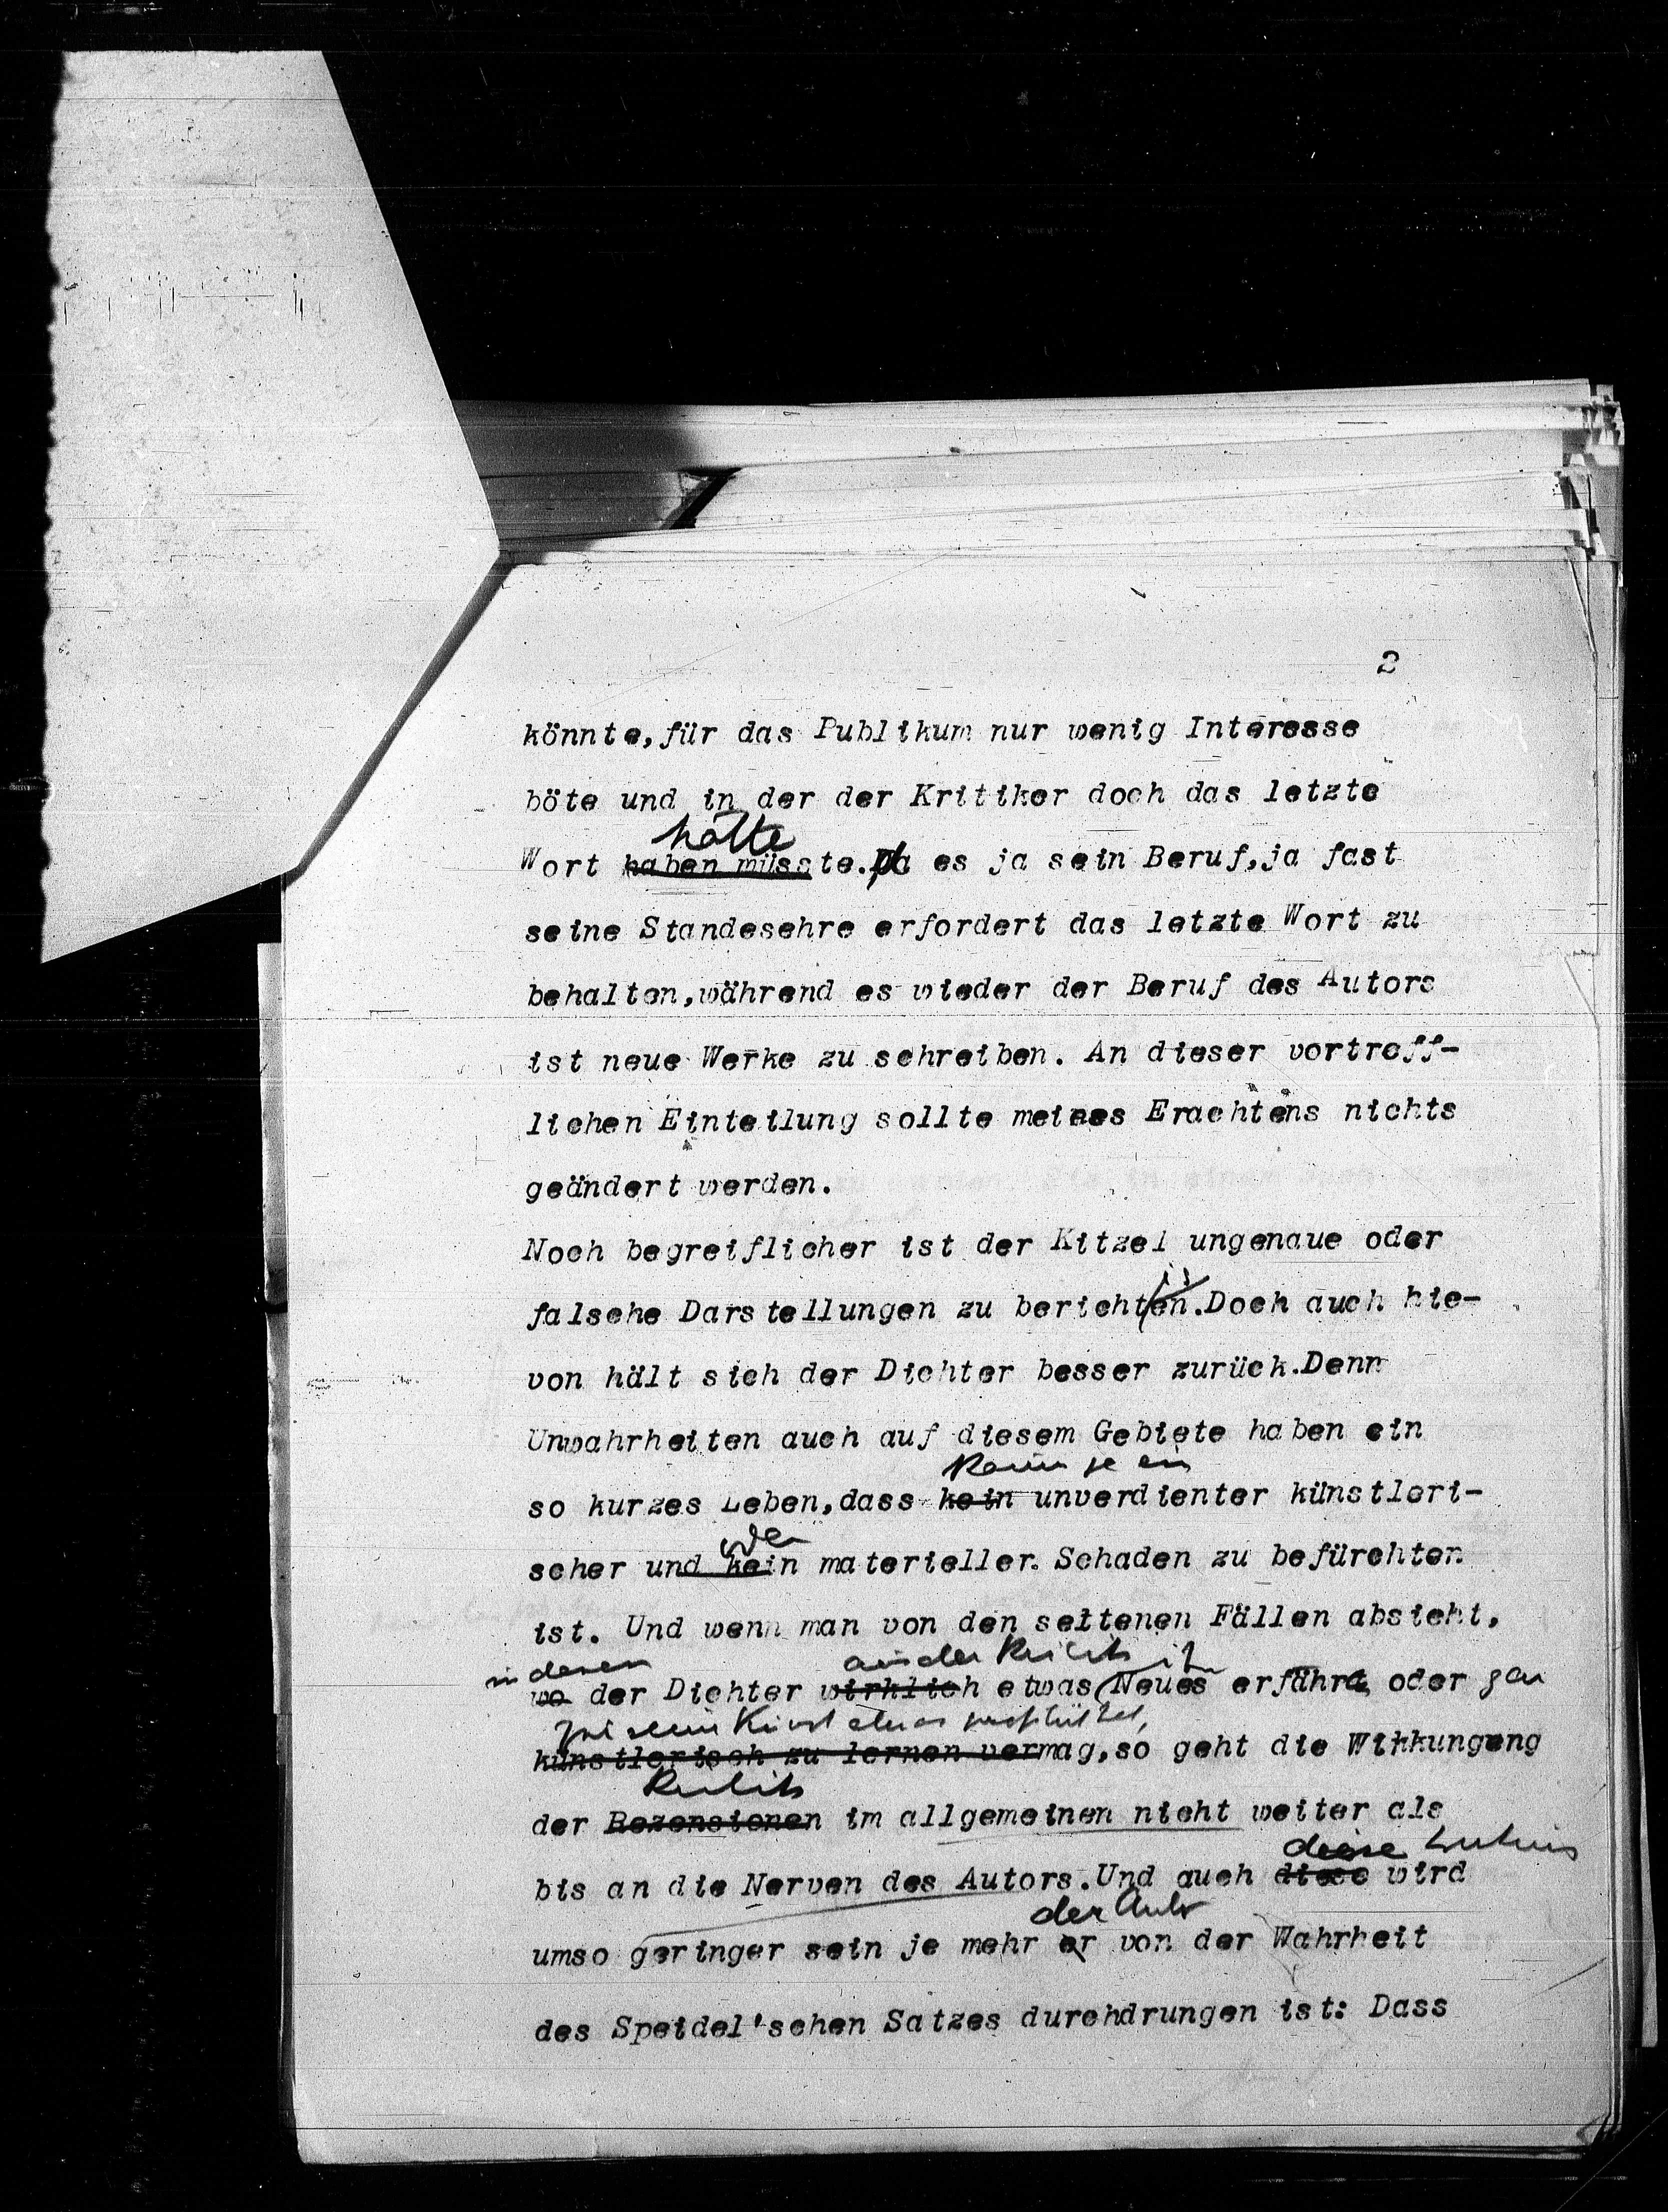 2
könnte,für das Publikum nur wenig Interesse
böte und in der der Kritiker doch das letzte
hätte
Wort haben müsste.da es ja sein Beruf,ja fast
seine Standesehre erfordert das letzte Wort zu
behalten,während es wieder der Beruf des Autors
ist neue Werke zu schreiben. An dieser vortreff-
lichen Einteilung sollte meines Erachtens nichts
geändert werden.
Noch begreiflicher ist der Kitzel ungenaue oder
falsche Darstellungen zu berichten.Doch auch hie-
von hält sich der Dichter besser zurück.Denn
Unwahrheiten auch auf diesem Gebiete haben ein
kaum je ein
so kurzes Leben,dass kein unverdienter künstleri-
oder
scher und kein materieller Schaden zu befürchten
ist. Und wenn man von den seltenen Fällen absieht,
in denen aus der Kritik
wo der Dichter wirklich etwas Neues erfährt oder gar
für seine Kunst etwas
künstlerisch zu lernen vermag,so geht die Wirkungung
Kritik
der Rezensionen im allgemeinen nicht weiter als
diese
bis an die Nerven des Autors.Und auch diese wird
der Autor
umso geringer sein je mehr er von der Wahrheit
des Speidel'schen Satzes durchdrungen ist: Dass